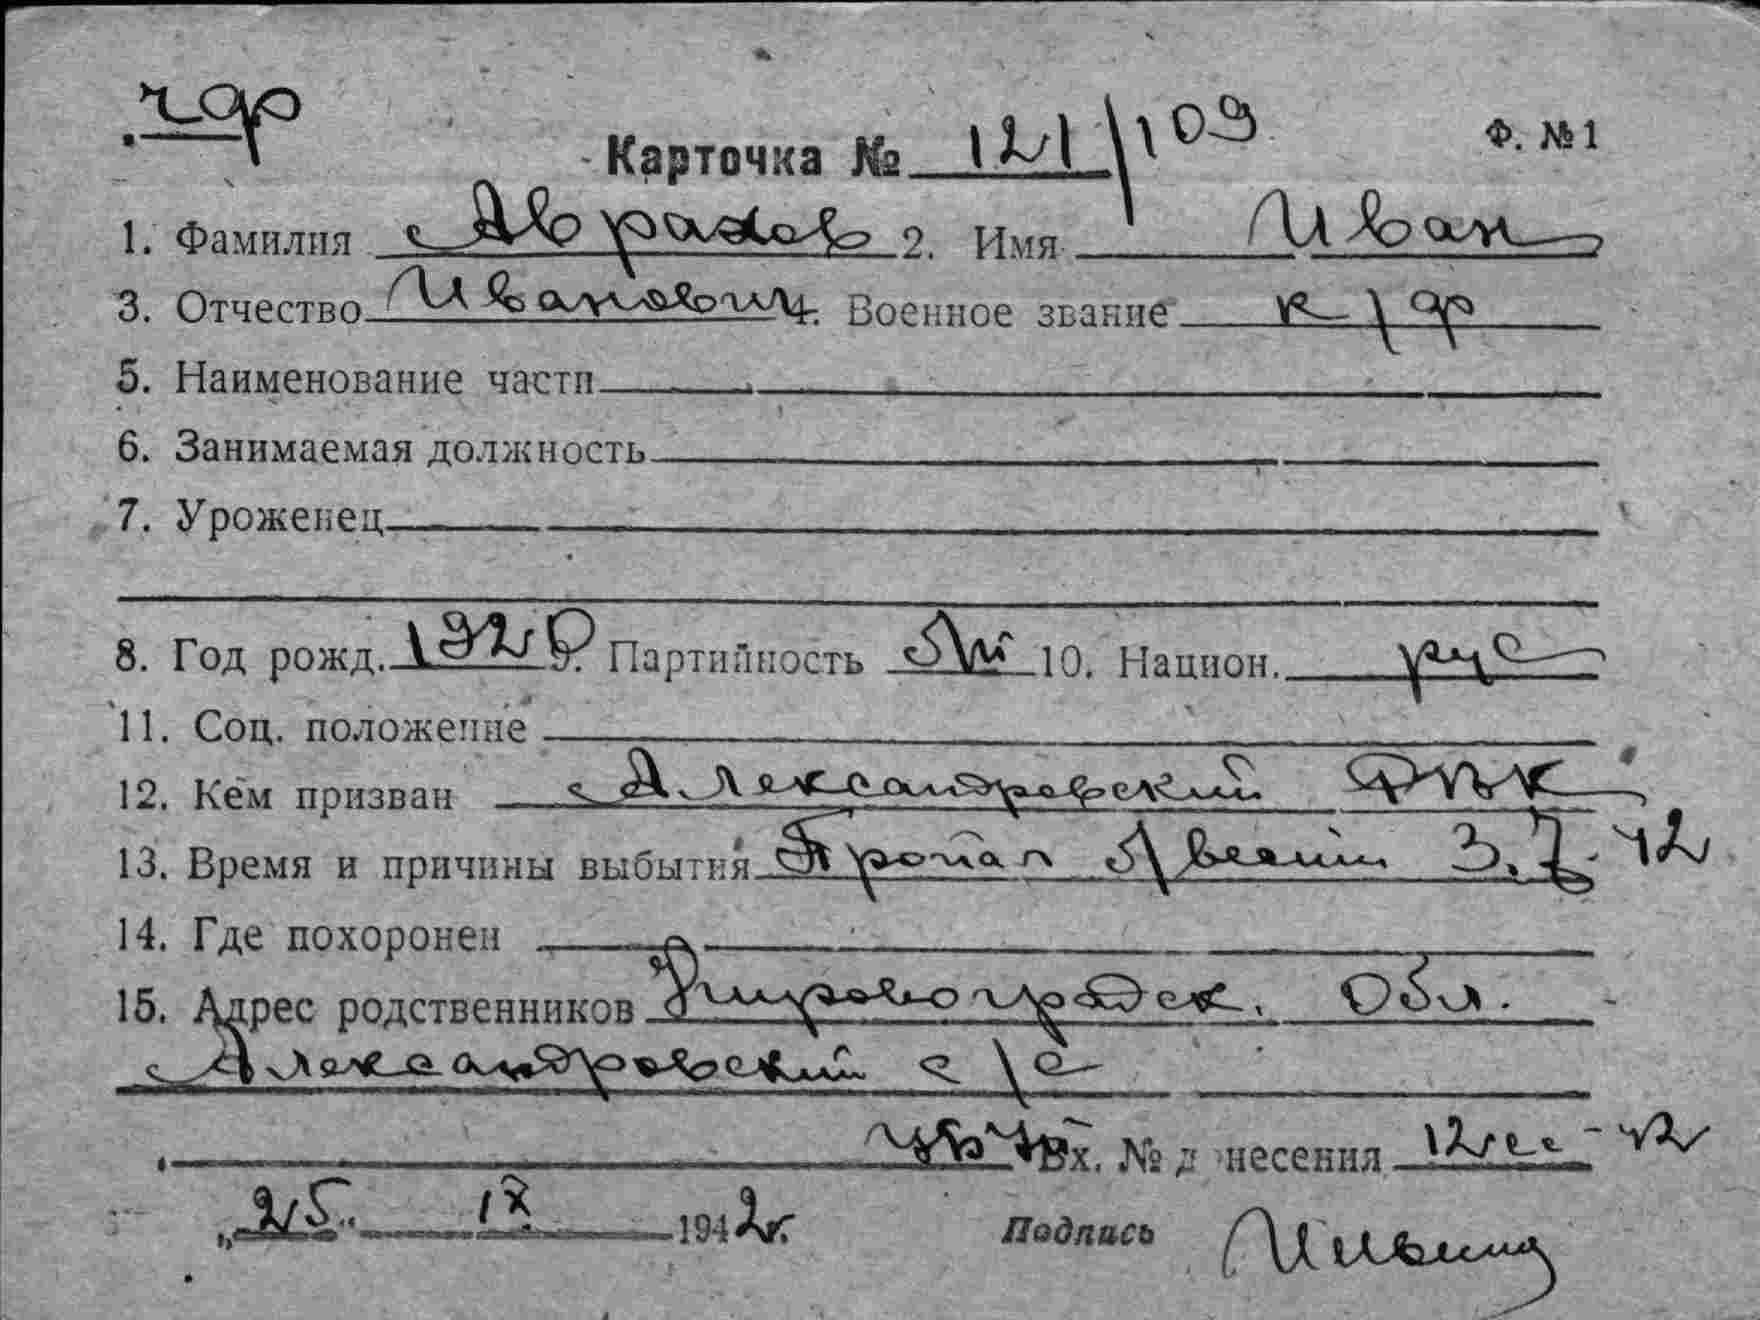 Карточка № 121/109 Ф. №1
1. Фамилия 2. Имя Иван
3. Отчество Иванович 4. Военное звание к/ф
5. Наименование части
6. Занимаемая должность
7. Уроженец
8. Год рожд. 1920 9. Партийность 10. Национ. рус
11. Соц. положение
12. Кем призван Александровский РВК
13. Время и причины выбытия Пропал 42
14. Где похоронен
15. Адрес родственников Кировоградск. Обл.
Александровский с/с
Вх. № д несения
„25" IX 1942г. Подпись